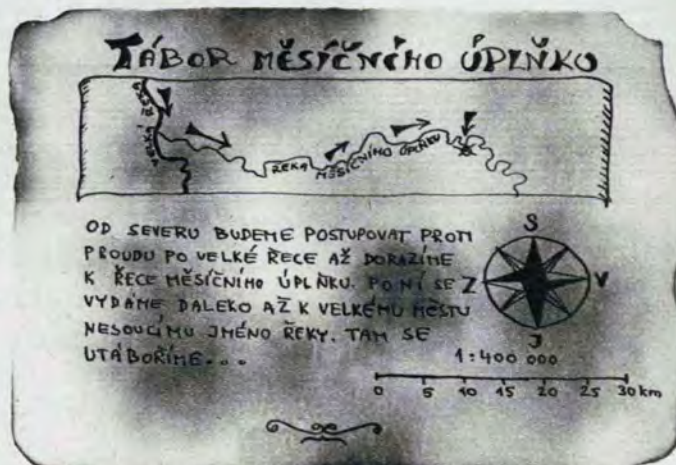 TÁBOR MĚSÍČNÍHO ÚPLŇKU
VELKÁ ŘEKA
ŘEKA MĚSÍČNÍHO ÚPLŇKU
OD SEVERU BUDEME POSTUPOVAT PROTI
PROUDU PO VELKÉ ŘECE AŽ DORAZÍME
K ŘECE MĚSÍČNÍHO ÚPLŇKU. PO NÍ SE
VYDÁME DALEKO AŽ K VELKÉMU MĚSTU
NESOUCÍMU JMÉNO ŘEKY. TAM SE
UTÁBOŘÍME...
S
Z V
J
1:400 000
0 5 10 15 20 25 30 km